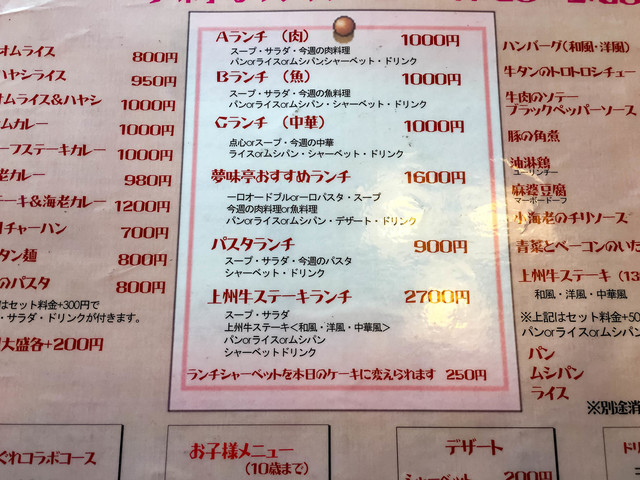 オムライス 800円
ハヤシライス 950円
オムライス&ハヤシ 1000円
カレー 1000円
ステーキカレー 1000円
カレー 980円
キ&海老カレー 1200円
チャーハン 700円
タン麺 800円
のパスタ 800円
はセット料金+300円で
・サラダ・ドリンクが付きます。
大盛各+200円
Aランチ（肉） 1000円
スープ・サラダ・今週の肉料理
パンorライスorムシパンシャーベット・ドリンク
Bランチ（魚） 1000円
スープ・サラダ・今週の魚料理
パンorライスorムシパン・シャーベット・ドリンク
Cランチ（中華） 1000円
点心orスープ・今週の中華
ライスorムシパン・シャーベット・ドリンク
夢味亭おすすめランチ 1600円
一口オードブルor一口パスタ・スープ
今週の肉料理or魚料理
パンorライスorムシパン・デザート・ドリンク
パスタランチ 900円
スープ・サラダ・今週のパスタ
シャーベット・ドリンク
上州牛ステーキランチ 2700円
スープ・サラダ
上州牛ステーキ<和風・洋風・中華風>
パンorライスorムシパン
シャーベットドリンク
ランチシャーベットを本日のケーキに変えられます 250円
ハンバーグ（和風・洋風）
牛タンのトロトロシチュー
牛肉のソテー
ブラックペッパーソース
豚の角煮
油淋鶏
ユーリンチー
麻婆豆腐
マーボードーフ
小海老のチリソース
青菜とベーコンのいた
上州牛ステーキ（13
和風・洋風・中華風
※上記はセット料金+50
パンorライスorムシパン
パン
ムシパン
ライス
※別途消
ぐれコラボコース
お子様メニュー
（10歳まで）
デザート
シャーベット 200円
ドリ